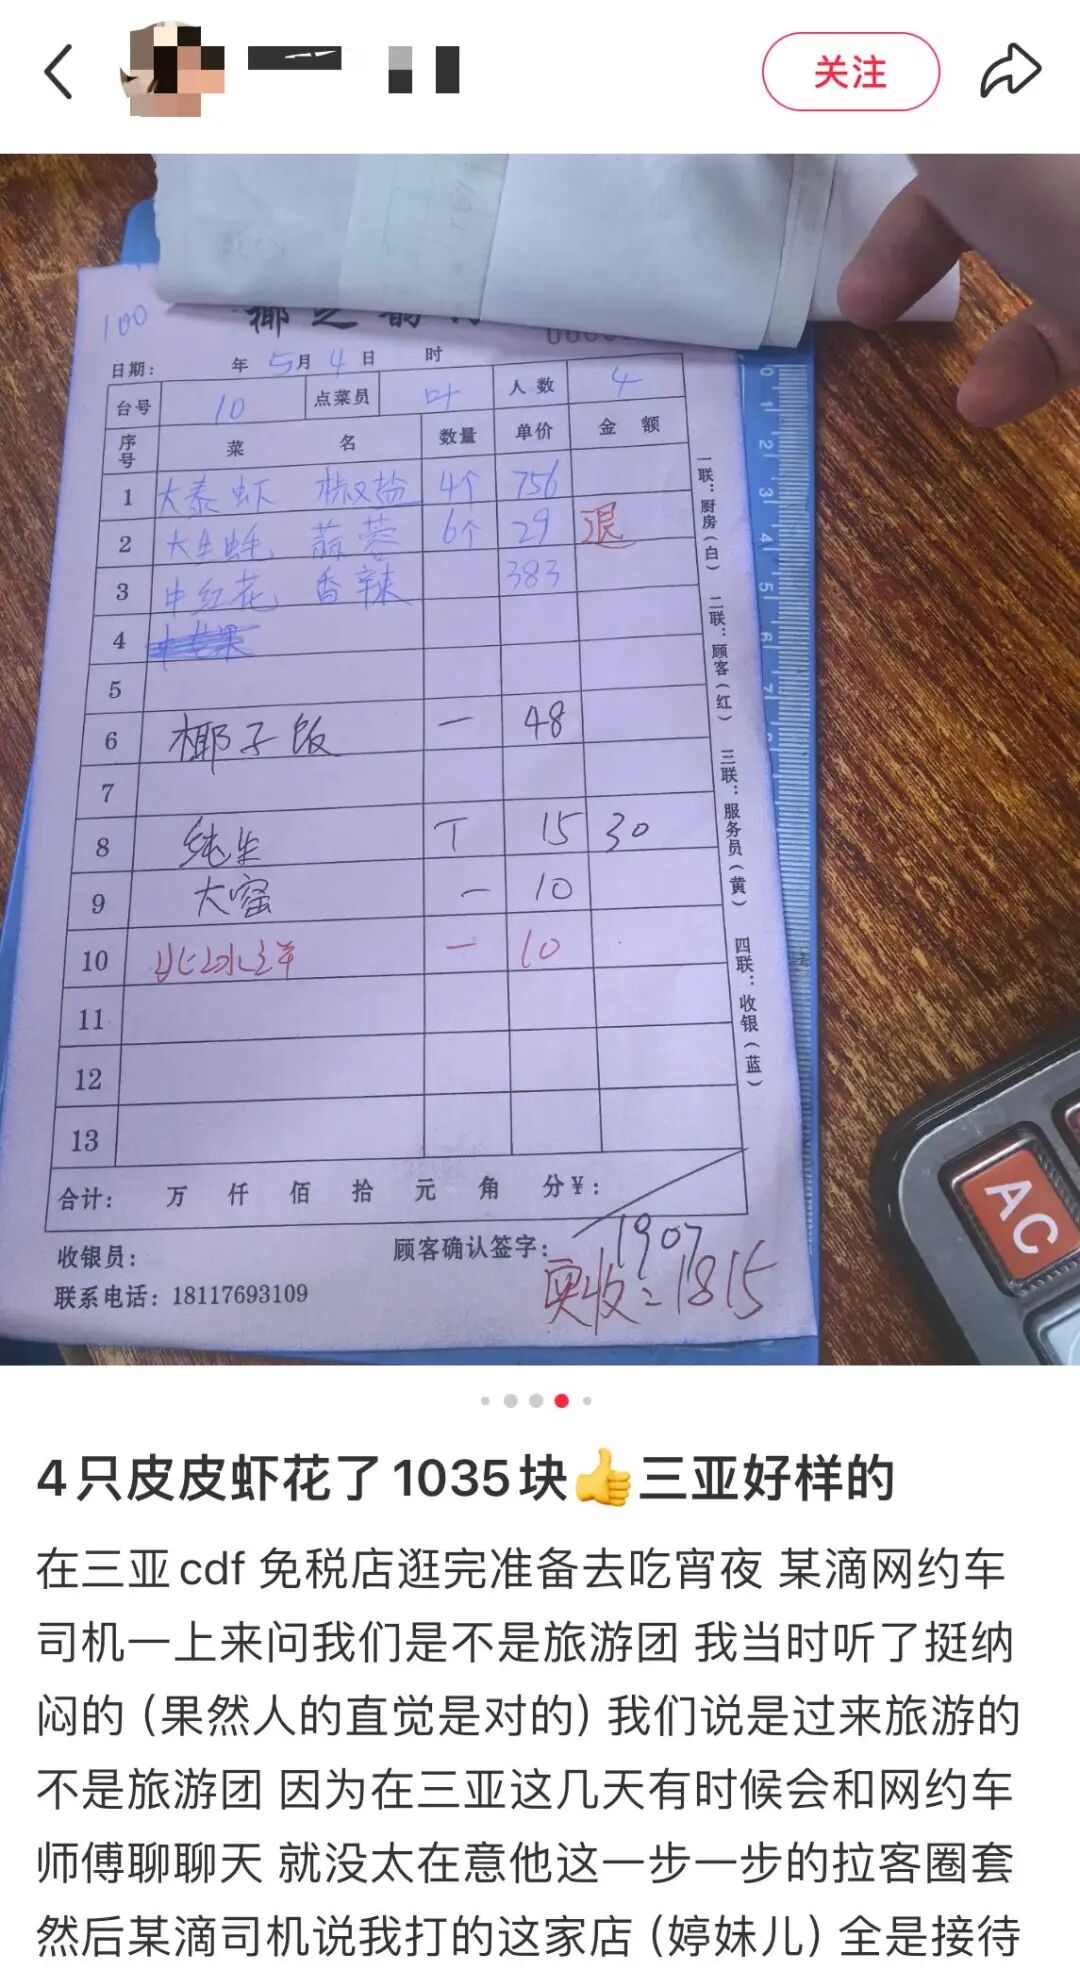 关注
100
椰之韵
日期: 年 5月 4日 时
台号 10 点菜员 叶 人数 4
序号 菜名 数量 单价 金额
1 大泰虾 椒盐 4个 756
2 大生蚝 蒜蓉 6个 29 退
3 中红花 香辣 383
4
5
6 椰子饭 一 48
7
8 纯生 T 15 30
9 大窑 一 10
10 北冰洋 一 10
11
12
13
合计: 万 仟 佰 拾 元 角 分¥:
收银员: 顾客确认签字: 1907
联系电话: 18117693109 实收=1815
一联:厨房(白) 二联:顾客(红) 三联:服务员(黄) 四联:收银(蓝)
0 1 2 3 4 5 6 7
AC
4只皮皮虾花了1035块👍三亚好样的
在三亚cdf 免税店逛完准备去吃宵夜 某滴网约车
司机一上来问我们是不是旅游团 我当时听了挺纳
闷的（果然人的直觉是对的）我们说是过来旅游的
不是旅游团 因为在三亚这几天有时候会和网约车
师傅聊聊天 就没太在意他这一步一步的拉客圈套
然后某滴司机说我打的这家店（婷妹儿）全是接待